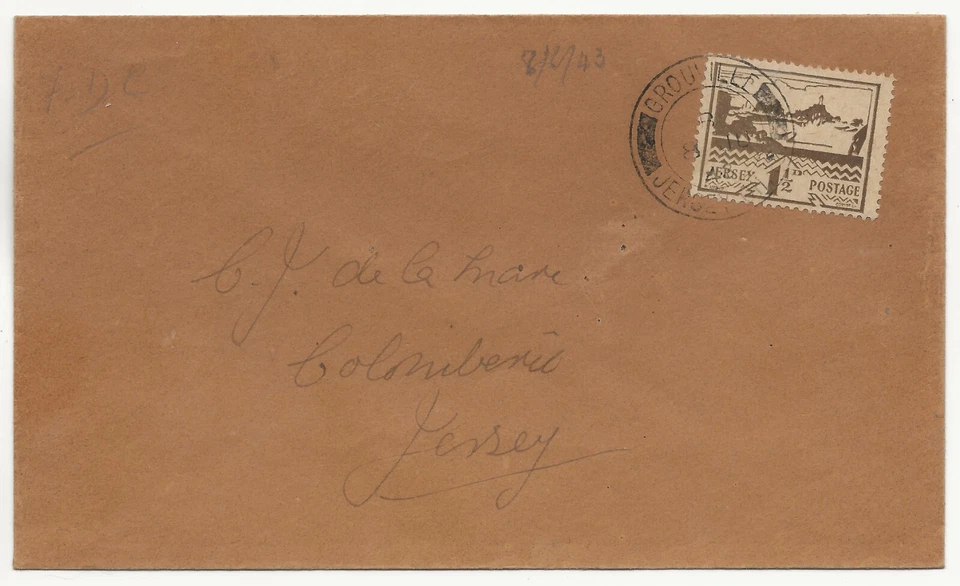 F.D.C
8/6/43
GROUVILLE
JERSEY
JERSEY 1½D POSTAGE
C. J. de la Mare
Colomberie
Jersey